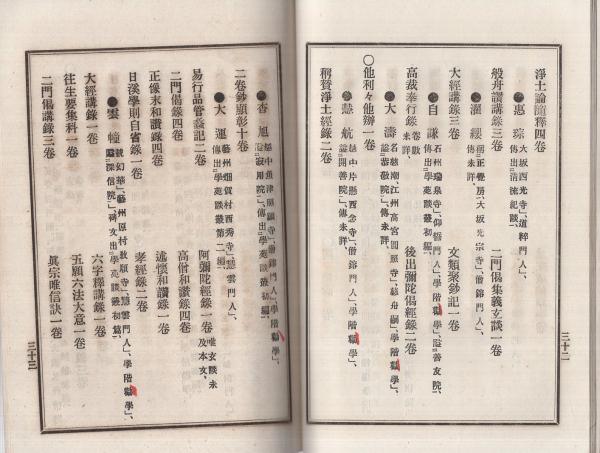 淨土論隨釋四卷
●惠琮 大坂西光寺」、道粹門人」、
傳出「淸流紀談」、
般舟讚講錄三卷
二門偈集義玄談一卷
●濯纓 稱「正覺房」、大坂光宗寺」、僧鎔門人」、
傳未詳、
大經講錄三卷
文類聚鈔記一卷
●自謙 石州瑞泉寺」、仰誓門人」、學階勸學」、諡「善友院」、
傳出「學苑談叢初編」、
高裁奉行錄 卷數未詳、
後出彌陀偈經錄二卷
●大濤 名慈潮」、江州高宮圓照寺」、慈舟嗣」、學階勸學」、
諡「恭敬院」、傳未詳、
〇他利々他辦一卷
●慧航 越中片懸西念寺」、僧鎔門人」、學階勸學」、
諡「開善院」、傳未詳、
稱贊淨土經錄二卷
三十二
●香旭 越中魚津照顯寺」、僧鎔門人」、學階勸學」、
諡「寂用院」、傳出「學苑談叢初編」、
二卷鈔顯彰十卷
●大運 藝州畑賀村西秀寺」、慧雲門人」、
傳出「學苑談叢第二編」、
易行品管窺記二卷
阿彌陀經錄一卷 唯玄談未及本文、
二門偈錄四卷
高僧和讚錄四卷
正像末和讚錄四卷
述懷和讚錄一卷
日溪學則自省錄一卷
孝經錄二卷
●雲幢 號幻華」、藝州原村敎順寺」、慧雲門人」、學階勸學」、
諡「深信院」、碑文出「學苑談叢初篇」、
大經講錄一卷
六字釋講錄一卷
往生要集科一卷
五願六法大意一卷
二門偈講錄三卷
眞宗唯信訣一卷
三十三